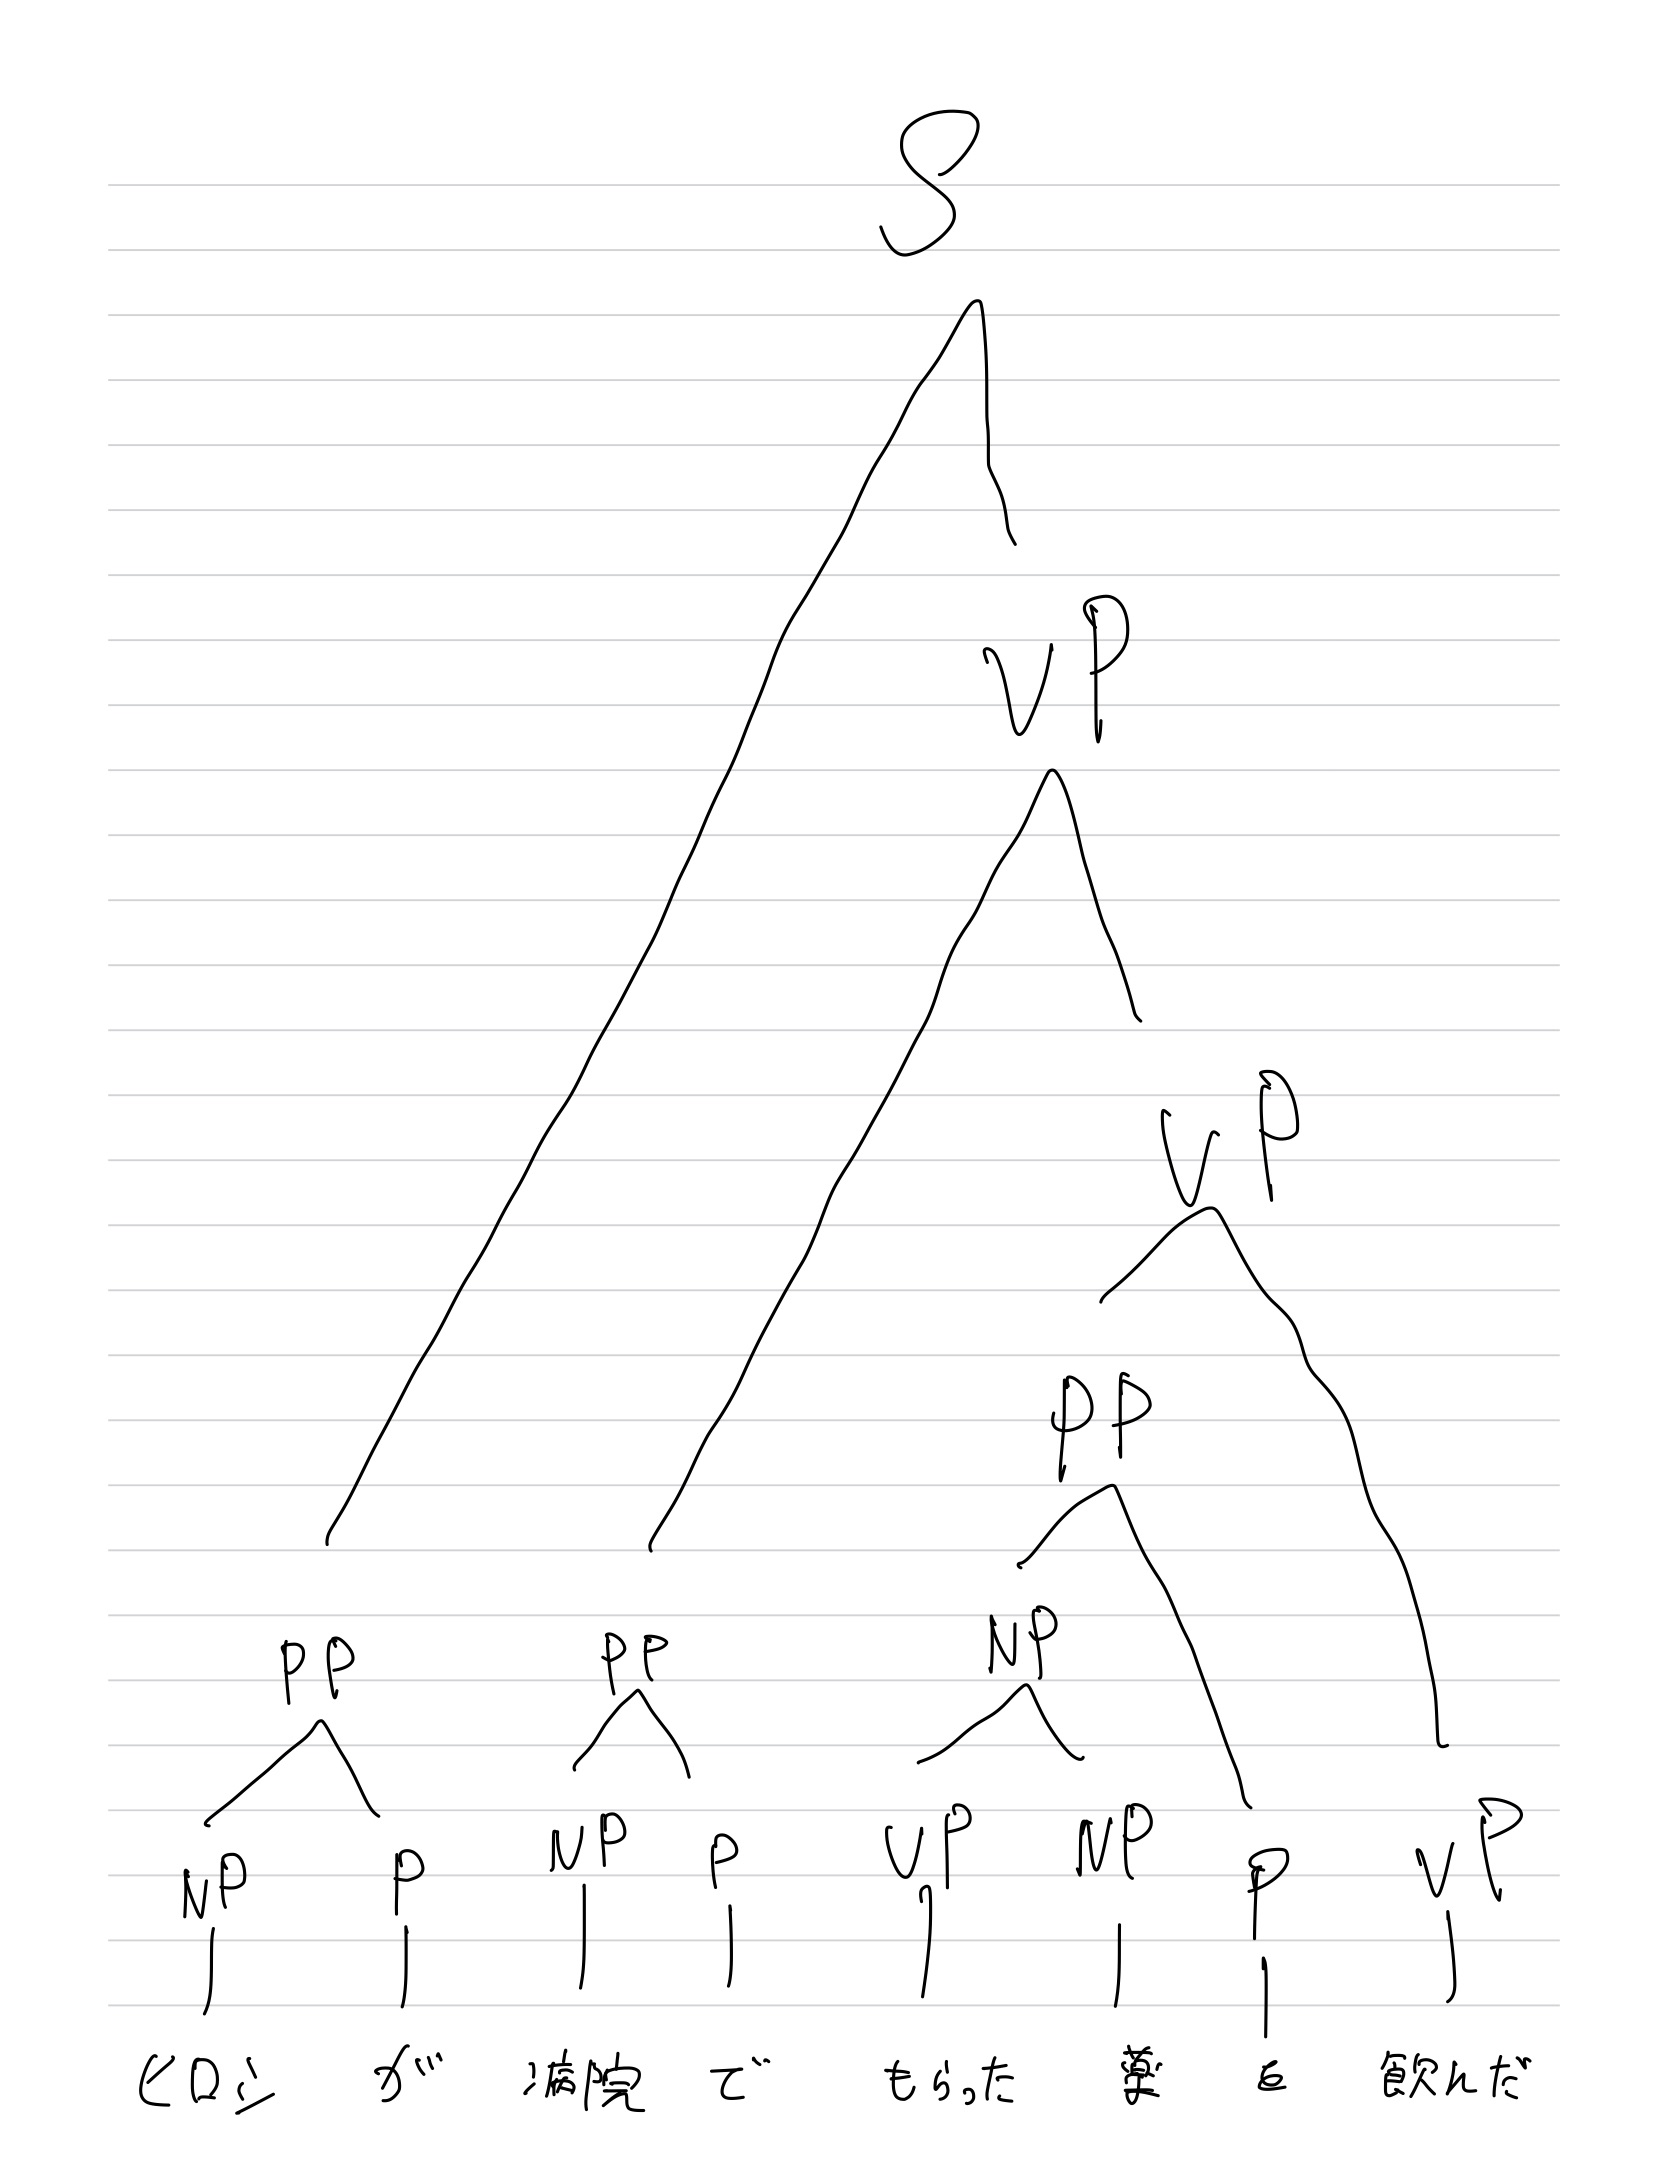 S
VP
VP
PP
PP PP NP
NP P NP P VP NP P VP
ヒロシ が 病院 で もらった 薬 を 飲んだ